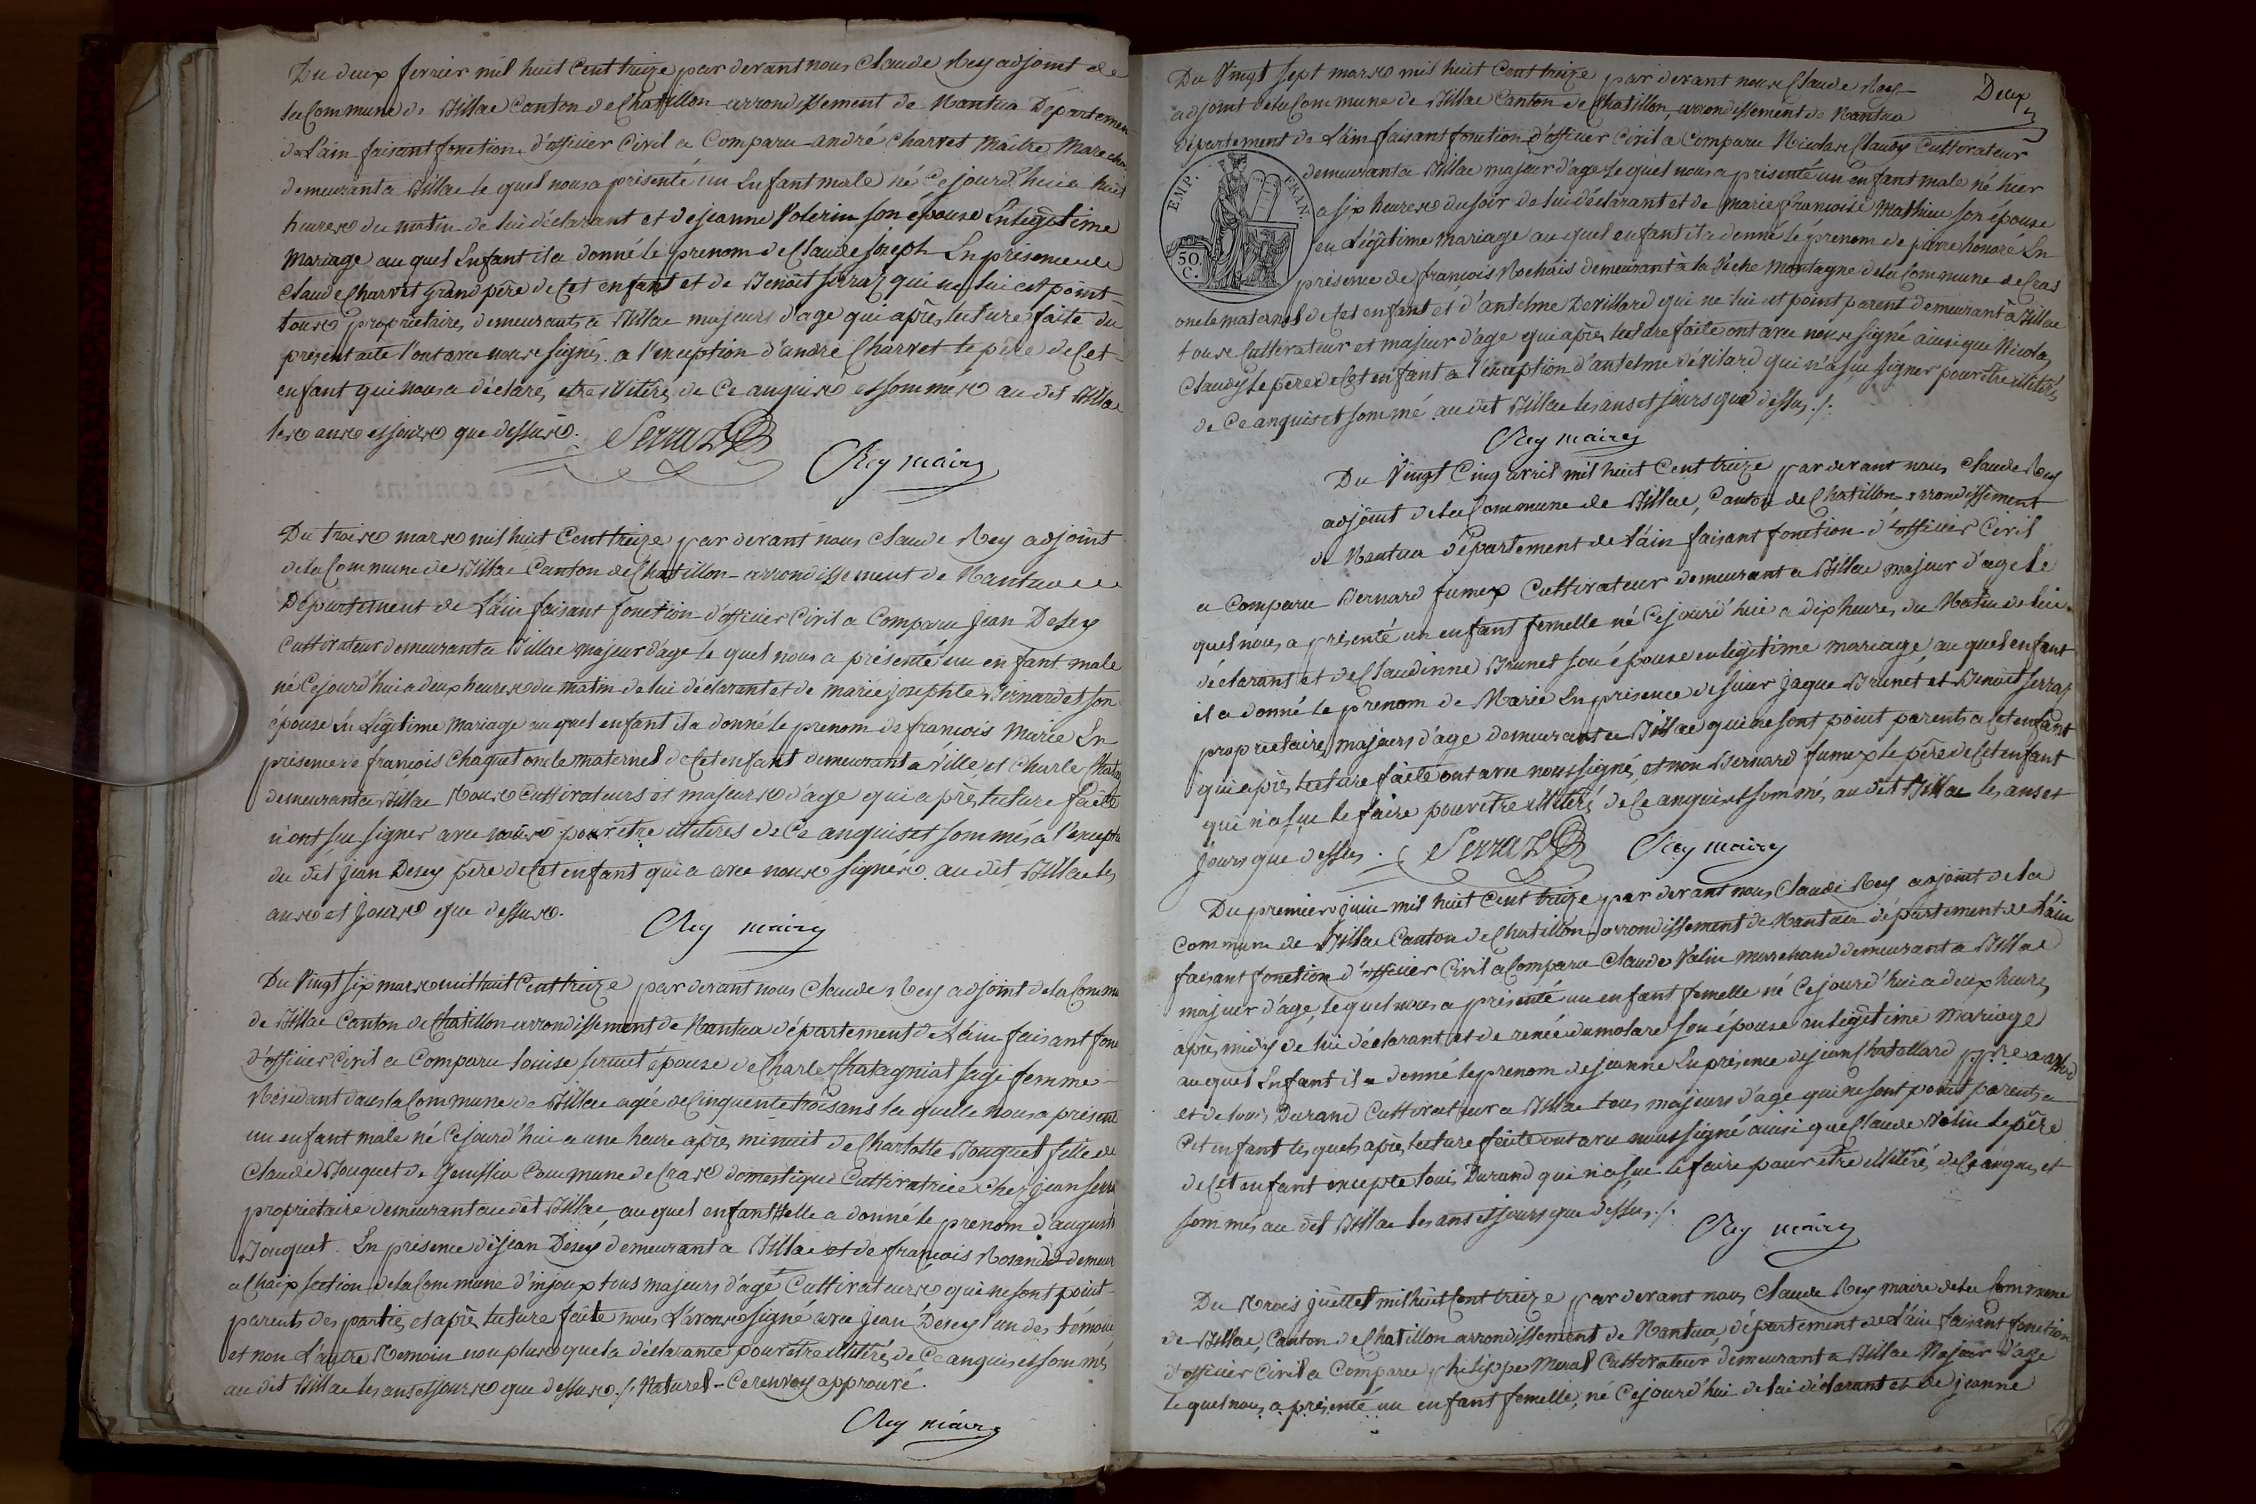 Du deux fevrier mil huit Cent treize par devant nous Claude Rey adjoint de
la Commune de Billiac Canton de Chatillon arrondissement de Nantua Départemen
de L'ain faisant fonction d'officier Civil a Comparu andré Charvet Maitre Marech
demeurant a Billiac le quel nous a présenté un Enfant male né Cejourd'hui a huit
heures du matin de lui déclarant et de jeanne Poterin son épouse En legetime
Mariage au quel Enfant il a donné le prenom de Claude joseph En présence de
Claude Charvet Grand père de Cet enfant et de Benoit serraz qui ne lui est point
tous propriétaires demeurants a Billiac majeurs d'age qui après lecture faite du
présent acte l'ont avec nous signés a l'exception d'andré Charvet le père de Cet
enfant qui nous a déclaré etre illitéré de Ce anquis et sommés au dit Billiac
les ans et jours que dessus.
Serraz
Rey maire
Du trois mars mil huit Cent treize par devant nous Claude Rey adjoint
de la Commune de Billiac Canton de Chatillon arrondissement de Nantua
Département de L'ain faisant fonction d'officier Civil a Comparu Jean Desey
Cultivateur demeurant a Billiac majeur d'age le quel nous a présenté un enfant male
né Cejourd'hui a deux heures du matin de lui déclarant et de marie josephte Bernardet son
épouse En Légitime Mariage au quel enfant il a donné le prenom de francois Marie En
présence de françois Chaquet oncle maternel de Cet enfant demeurant a Ville et Charle Chata
demeurant a Billiac tous Cultivateurs et majeurs d'age qui après lecture faite
n'ont sçu signer avec nous pour etre illiteres de Ce anquis et sommés a l'excepti
du dit jean Desey père de Cet enfant qui a avec nous signés au dit Billiac les
ans et jours que dessus.
Rey maire
Du Vingt six mars mil huit Cent treize par devant nous Claude Rey adjoint de la Commu
de Billiac Canton de Chatillon arrondissement de Nantua département de L'ain faisant fonc
d'officier Civil a Comparu Louise servet épouse de Charle Chatagniat sage femme
Résidant dans la Commune de Billiac agée de Cinquente trois ans la quelle nous a présenté
un enfant male né Cejourd'hui a une heure après minuit de Charlotte Bouquet fille de
Claude Bouquet de Genissia Commune de Cras domestique Cultivatrice chez jean serra
propriétaire demeurant au dit Billiac, au quel enfant Elle a donné le prenom d'august
Bouquet. En présence de jean Desey demeurant a Billiac et de françois Rosand demeur
a Chaix section de la Commune d'injoux tous majeurs d'age Cultivateurs qui ne sont point
parents des parties et après lecture faite nous L'avons signé avec jean Desey l'un des témoins
et non L'autre témoin non plus que la déclarante pour etre illitérés de Ce anquis et sommés
au dit Billiac les ans et jours que dessus ./. Naturel Ce renvoy approuvé.
Rey maire
Deux
Du Vingt sept mars mil huit Cent treize par devant nous Claude Rey
adjoint de la Commune de Billiac Canton de Chatillon, arrondissement de Nantua
Département de L'ain faisant fonction d'officier Civil a Comparu Nicolas Claudy Cultivateur
demeurant a Billiac majeur d'age le quel nous a présenté un enfant male né hier
a six heures du soir de lui déclarant et de marie francoise Mathieu son épouse
en Légitime mariage au quel enfant il a donné le prenom de pierre honoré En
présence de françois Rochais demeurant à la Siche Montagne de la Commune de Cras
oncle maternel de Cet enfant et d'antelme Devillard qui ne lui est point parent demeurant à Billiac
tous Cultivateur et majeur d'age qui après lecture faite ont avec nous signé ainsi que Nicolas
Claudy le père de Cet enfant a l'exception d'antelme dévilard qui n'a sçu signer pour etre illitéré
de Ce anquis et sommé au dit Billiac les ans et jours que dessus ./.
EMP. FRAN.
50. C.
Rey maire
Du Vingt Cinq avril mil huit Cent treize par devant nous Claude Rey
adjoint de la Commune de Billiac, Canton de Chatillon arrondissement
de Nantua Département de L'ain faisant fonction d'officier Civil
a Comparu Bernard fumex Cultivateur demeurant a Billiac majeur d'age le
quel nous a présenté un enfant femelle né Cejourd'hui a dix heures du Matin de lui
déclarant et de Claudinne Brunet son épouse en legitime mariage, au quel enfant
il a donné le prenom de Marie En présence de sieur jaque Brunet et Benoit Serraz
propriétaires majeurs d'age demeurant a Billiac qui ne sont point parents a Cet enfant
qui après lecture faite ont avec nous signé, et non Bernard fumex le père de Cet enfant
qui n'a sçu le faire pour être illitéré de Ce anquis et sommé, au dit Billiac les ans et
jours que dessus.
Serraz
Rey maire
Du premier juin mil huit Cent treize par devant nous Claude Rey adjoint de la
Commune de Billiac Canton de Chatillon arrondissement de Nantua département de L'ain
faisant fonction d'officier Civil a Comparu Claude Valin marchand demeurant a Billiac
majeur d'age, le quel nous a présenté un enfant femelle né Cejourd'hui a deux heures
après midy de lui déclarant et de renée dumolard son épouse en legitime mariage
au quel Enfant il a donné le prenom de jeanne En présence de jean Chatellard
et de Louis Durand Cultivateur a Billiac tous majeurs d'age qui ne sont point parents a
Cet enfant les quels après lecture faite ont avec nous signé ainsi que Claude Valin le père
de Cet enfant excepté Louis Durand qui n'a sçu le faire pour etre illitéré de Ce anquis et
sommés au dit Billiac les ans et jours que dessus ./.
Rey maire
Du trois juillet mil huit Cent treize par devant nous Claude Rey maire de la Commune
de Billiac, Canton de Chatillon arrondissement de Nantua, département de L'ain faisant fonction
d'officier Civil a Comparu philippe Meral Cultivateur demeurant a Billiac Majeur d'age
le quel nous a présenté un enfant femelle, né Cejourd'hui de lui déclarant et de jeanne